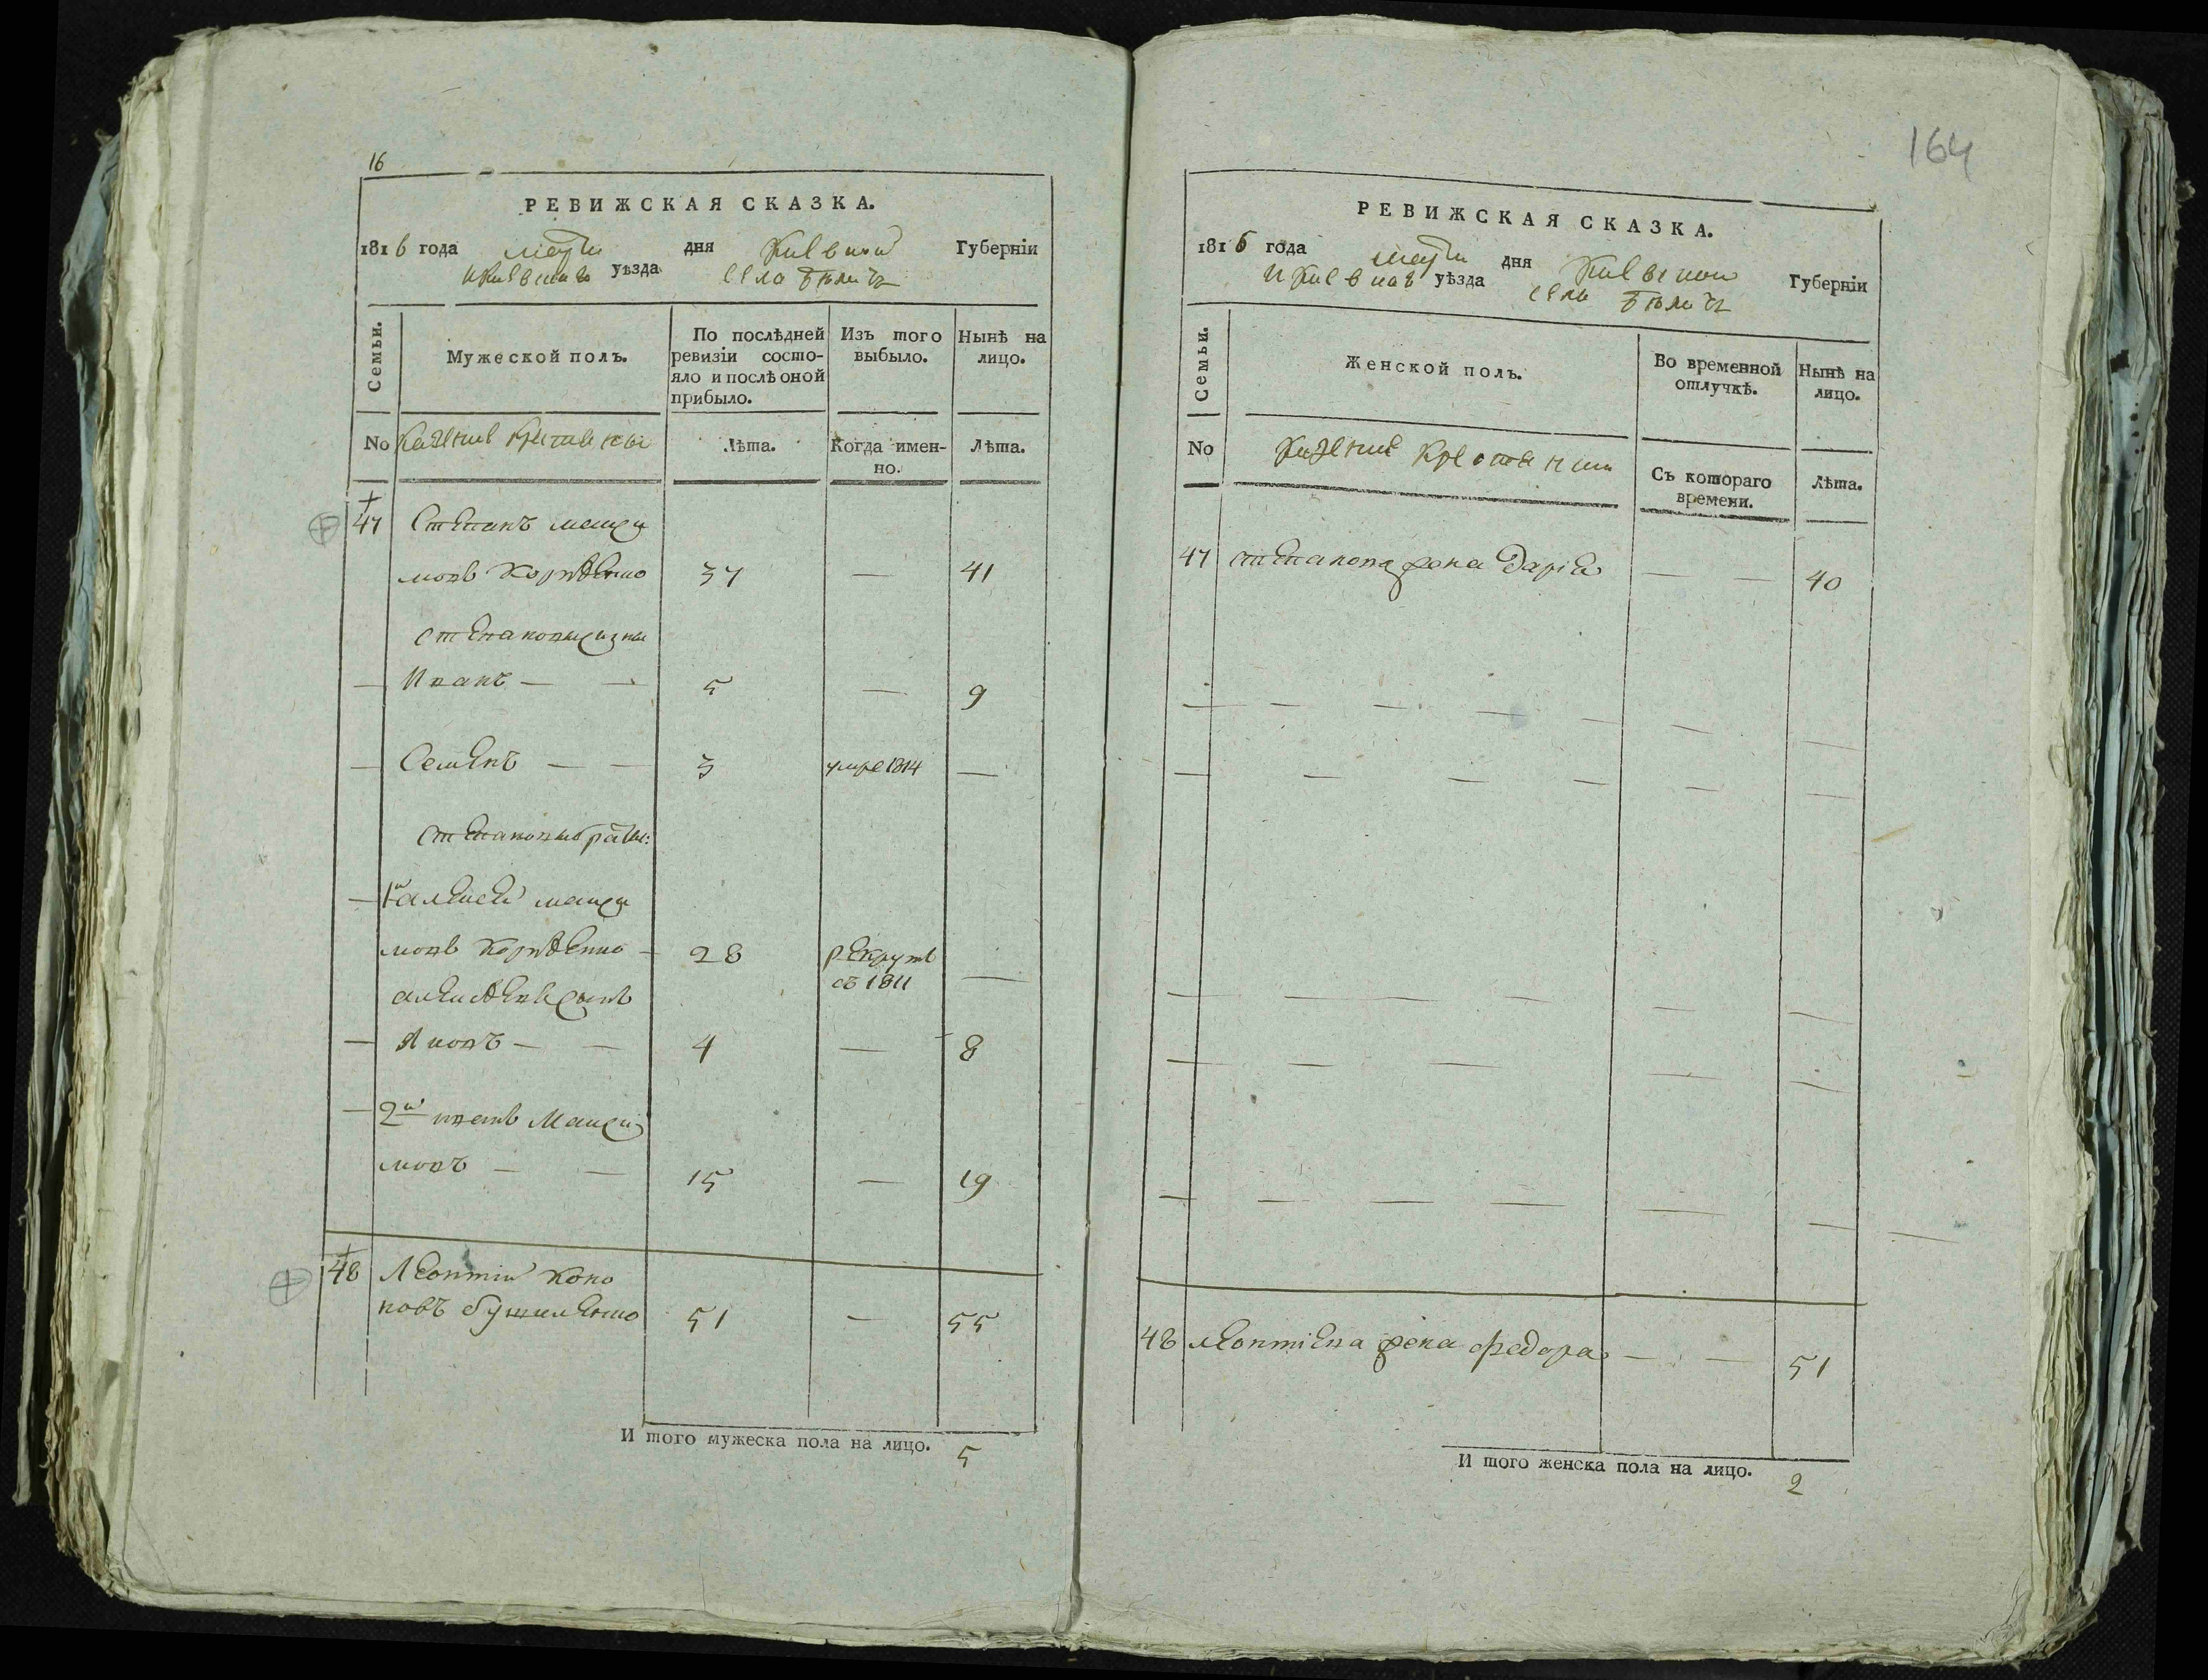 16
РЕВИЖСКАЯ СКАЗКА.
1816 года марта дня Киевской Губерніи
и Киевскаго уѣзда села
Семьи.
Мужеской полъ.
По послѣдней ревизіи состо-
яло и послѣ оной
прибыло.
Изъ того
выбыло.
Нынѣ на
лицо.
No
Лѣта.
Когда имен-
но.
Лѣта.
47 Степанъ макси
мовъ 37 — 41
степановы сыны
— Иванъ — — 5 — 9
— Семенъ — — 3 умре 1814 —
степановы братья:
— 1й алексей макси
мовъ — 28 рекрутъ
съ 1811 —
алексеевъ сынъ
— Яковъ — — 4 — 8
— 2й игнатъ Макси
мовъ — — 15 — 19
48 Леонтий Коно
новъ 51 — 55
И того мужеска пола на лицо. 5
164
РЕВИЖСКАЯ СКАЗКА.
1816 года марта дня Киевской Губерніи
и Киевскаго уѣзда села
Семьи.
Женской полъ.
Во временной
отлучкѣ.
Нынѣ на
лицо.
No
Съ котораго
времени.
Лѣта.
47 степанова жена Дарія — — 40
48 леонтіева жена федора — — 51
И того женска пола на лицо. 2